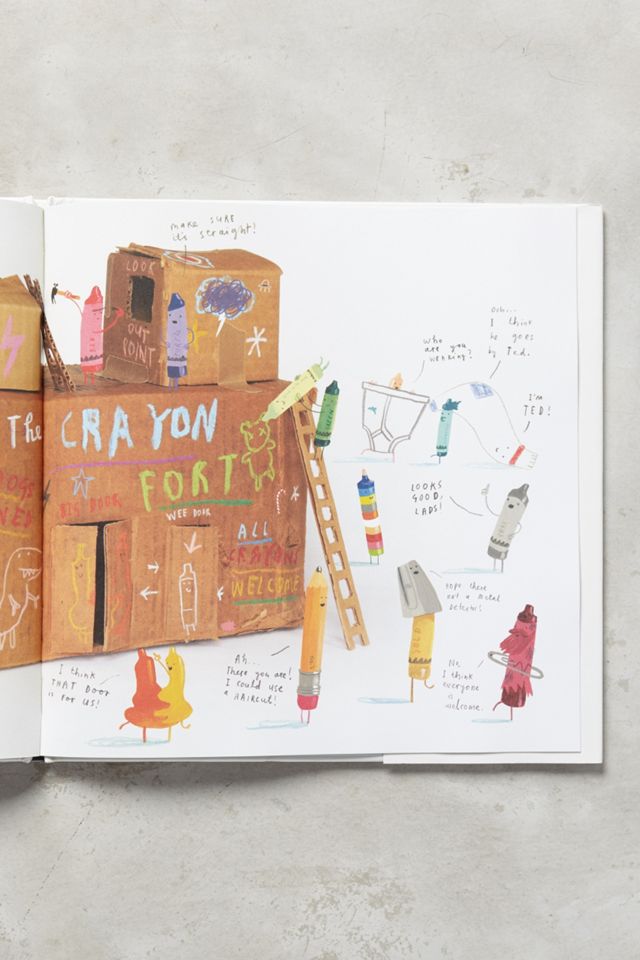 make sure
it's straight!
LOOK
OUT
POINT
Ooh...
I think
he goes
by Ted.
who
are you
wearing?
I'M
TED!
The
CRAYON
FORT
BIG DOOR
WEE DOOR
LOOKS
GOOD,
LADS!
ALL
CRAYONS
WELCOME
GOLD
Hope there
not a metal
detector!
I think
THAT Door
is for us!
Ah...
There you are!
I could use
a HAIRcut!
No,
I think
everyone
is
welcome.